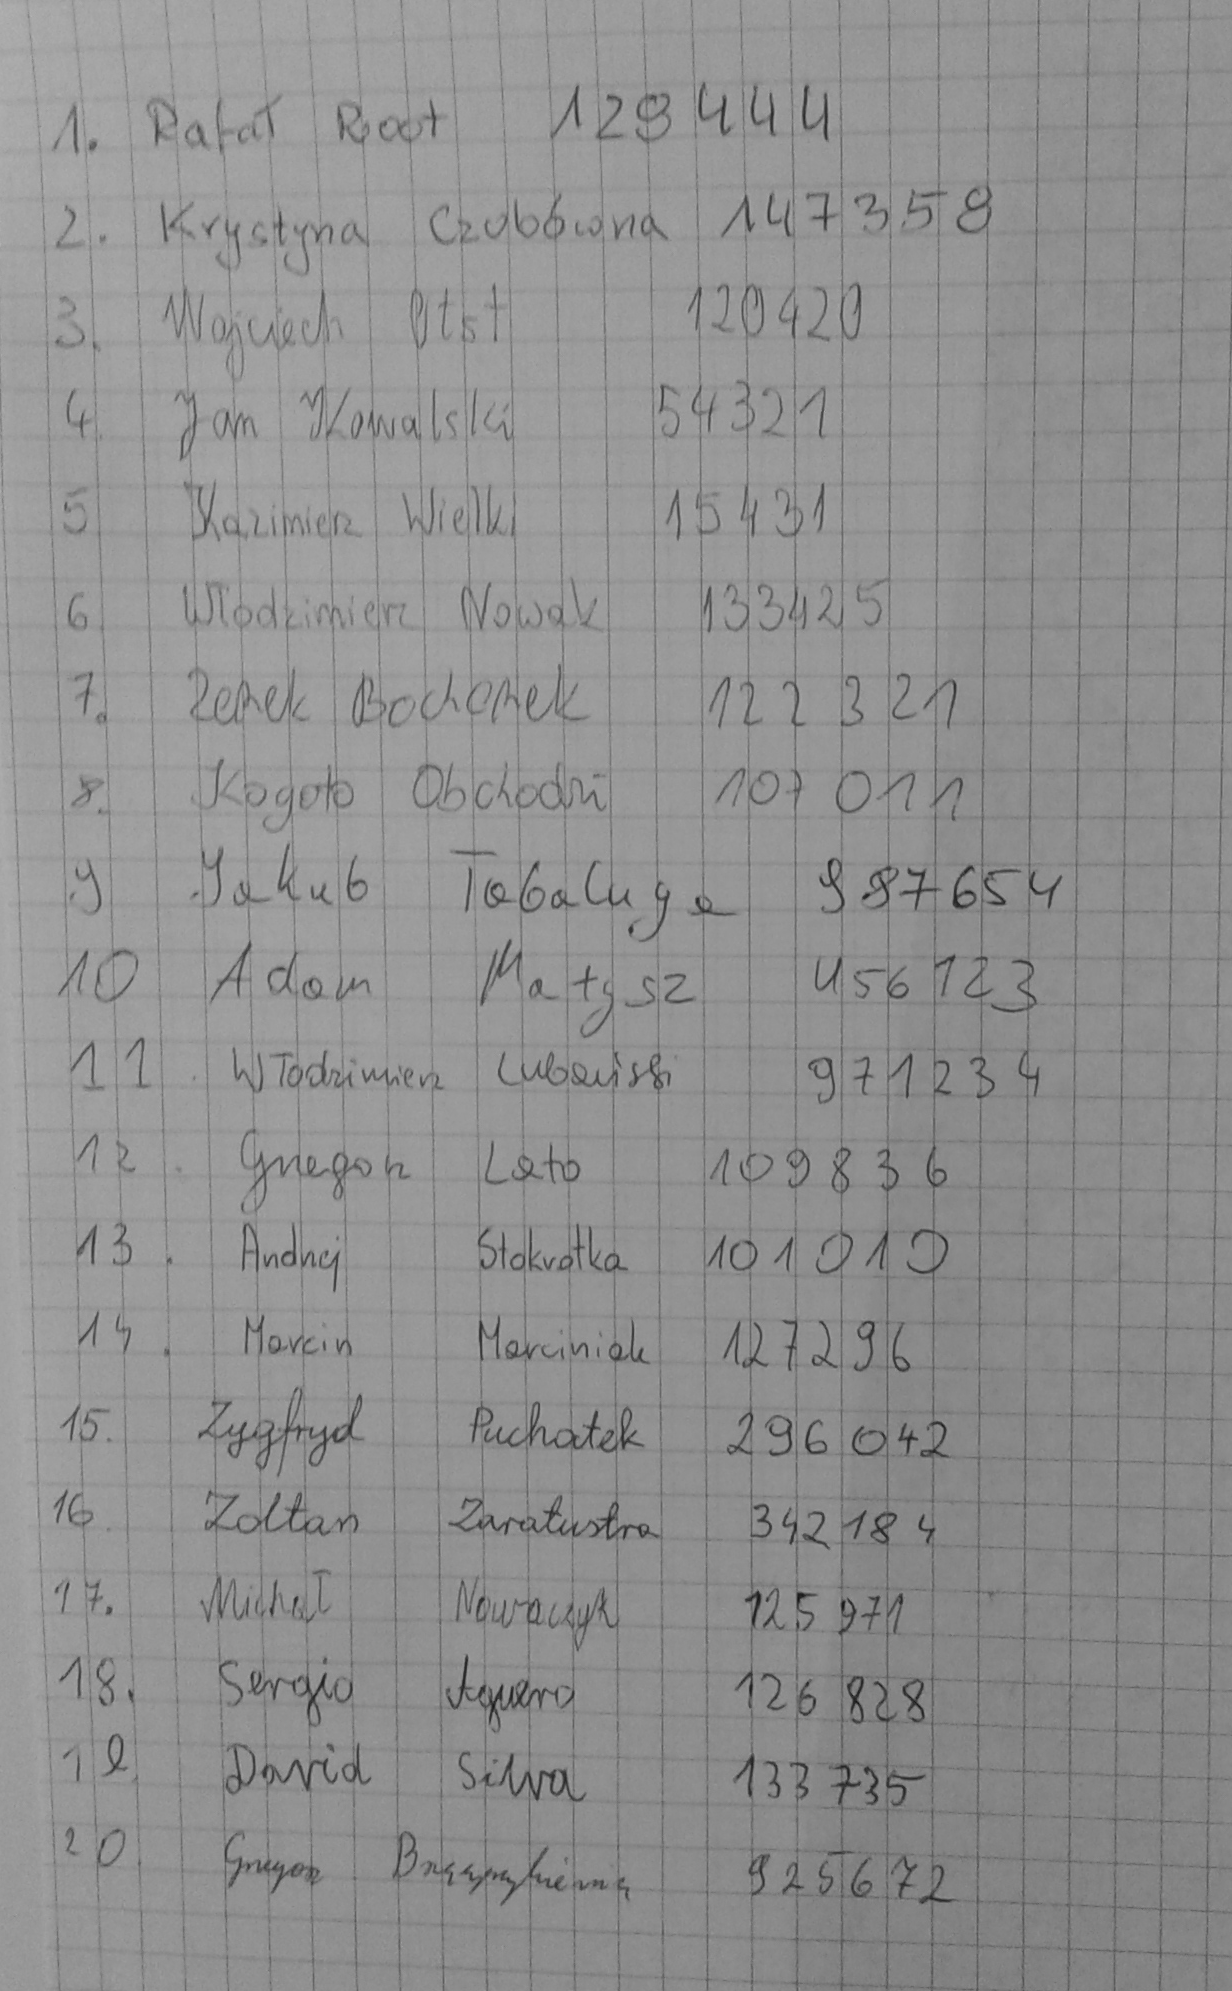 1. Rafał Root 129444
2. Krystyna Czubówna 147359
3. Wojciech Otst 120420
4. Jan Kowalski 54321
5 Kazimierz Wielki 15431
6 Włodzimierz Nowak 133425
7. Zenek Bochenek 122321
8. Kogoto Obchodzi 107011
9 Jakub Tabaluga 987654
10 Adam Małysz 456123
11. Włodzimierz 971234
12. Grzegorz Lato 109836
13. Andrzej Stokrotka 101010
14. Marcin Marciniak 127296
15. Zygfryd Puchatek 296042
16. Zoltan Zaratustra 342184
17. Michał Nowaczyk 125971
18. Sergio Aguero 126828
19. David Silva 133735
20. Grzegorz 925672